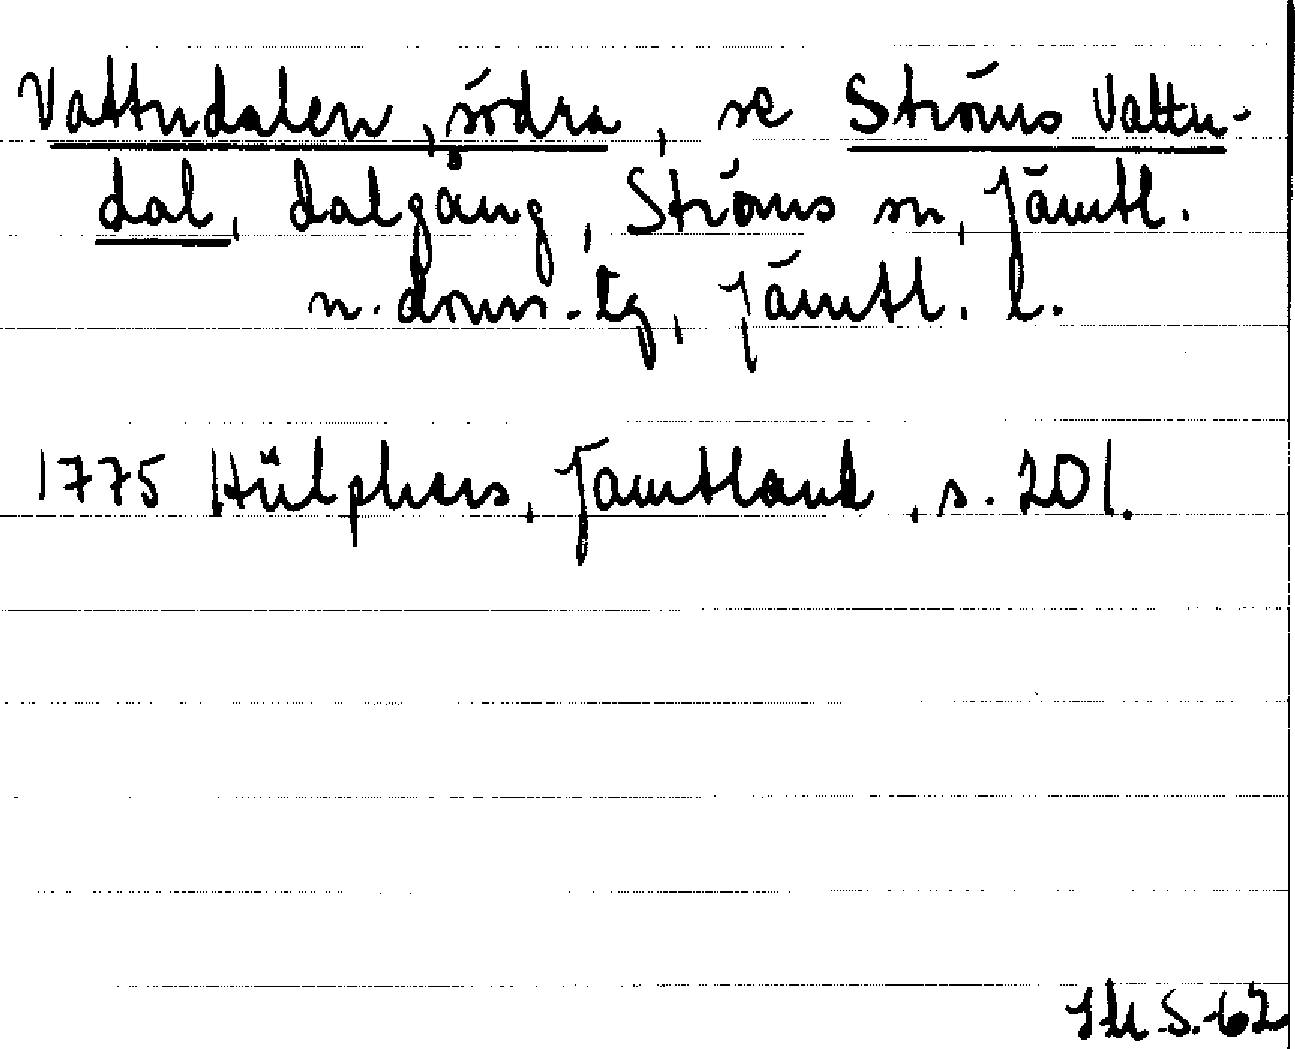 Vattudalen, södra, se Ströms Vattu-
dal, dalgång, Ströms sn, Jämtl.
n. doms.-tg, Jämtl. l.
1775 Hülphers, Jämtland, s. 201.
S.-62